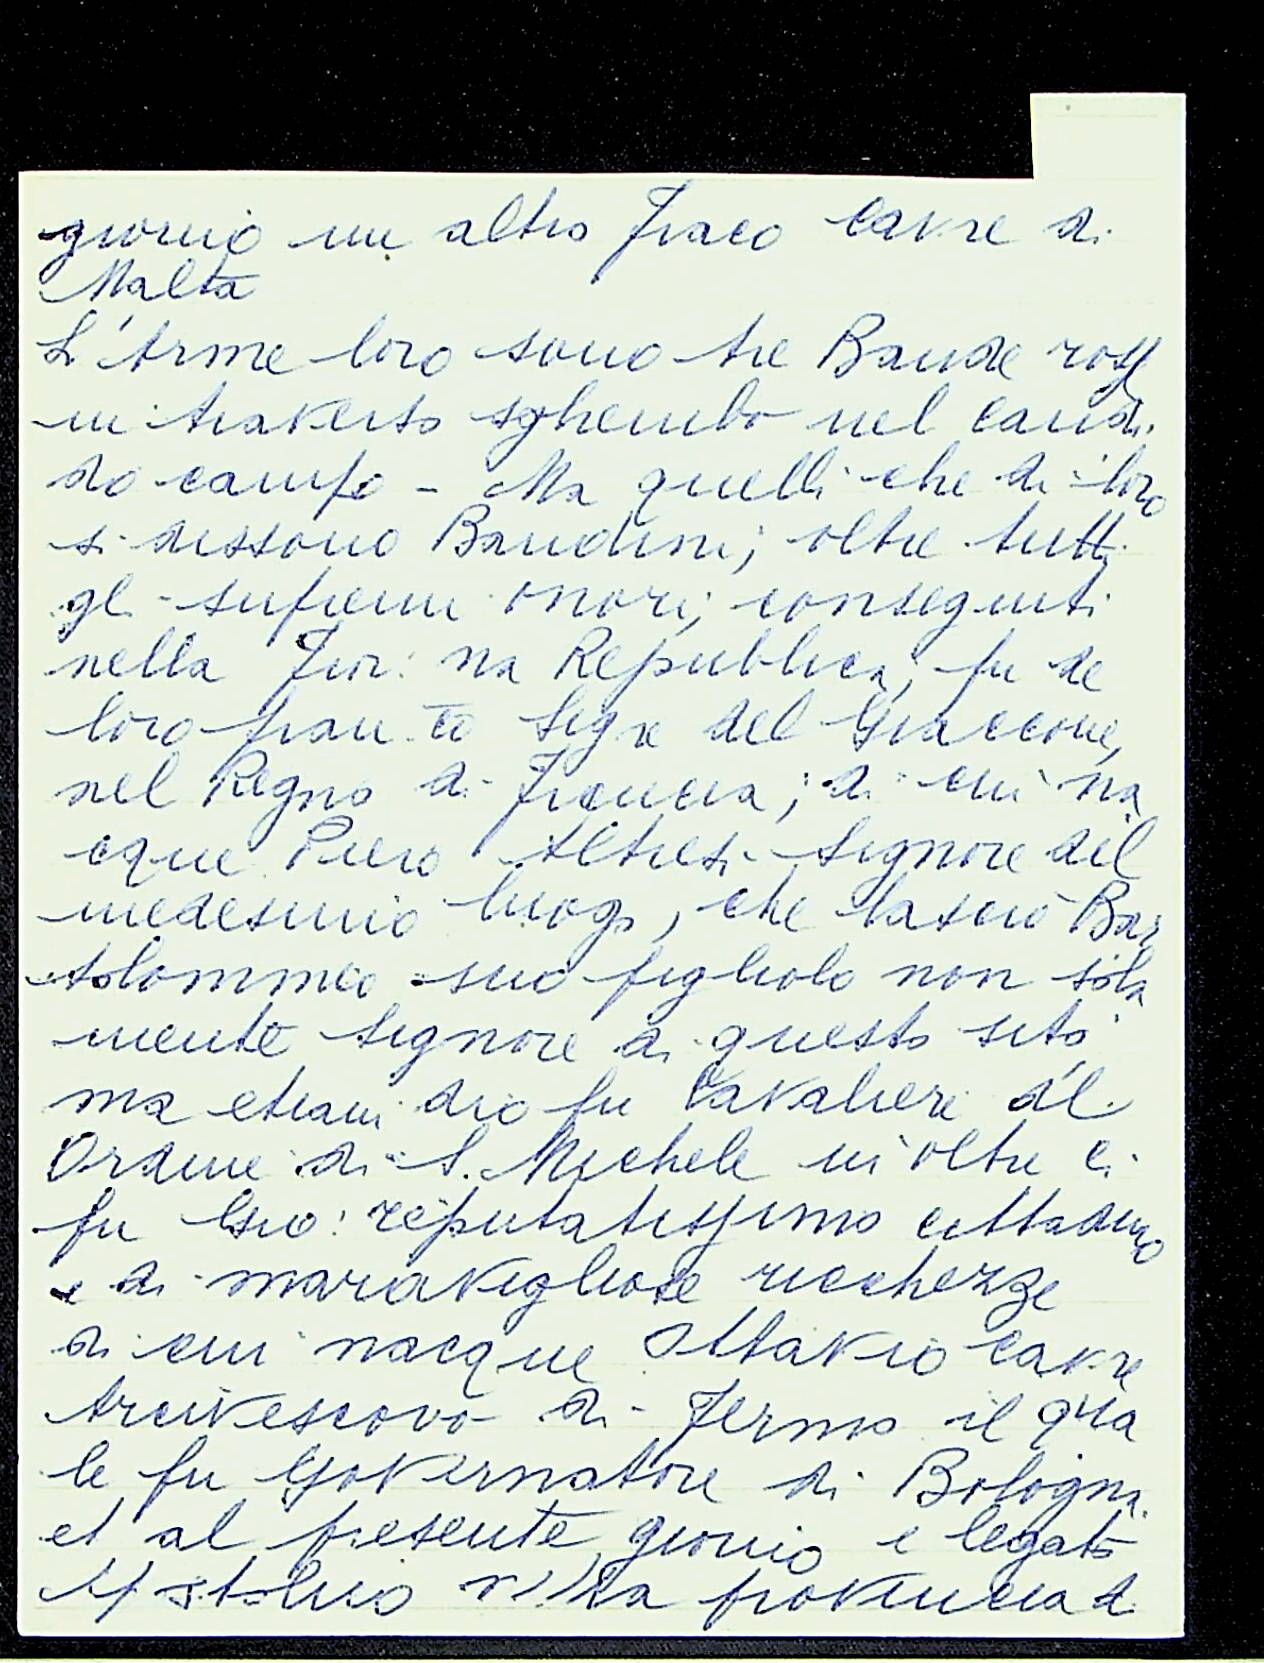 giorno un altro Fraco Cavre di
Malta
L'Arme loro sono tre Bande rosse
in traverso sghembo nel candi
do campo - Ma quelli che di loro
si dissono Bandini; oltre tutti
gli supremi onori, conseguiti
nella Fior: na Republica, fu de
loro fran.co Sigre del
nel Regno di Francia; di cui na
cque Piero Altresi Signore del
medesimo luogo, che lasciò Bar
tolommeo suo figliolo non sola
mente Signore di questo sito
ma etiam dio fu Cavaliere del
Ordine di S. Michele in oltre ci
fu Gio: reputatissimo cittadino
e di maravigliose ricchezze
di cui nacque Ottavio Cavre
Arcivescovo di Fermo il qua
le fu Governatore di Bologna
et al presente giorno e legato
nella provincia di